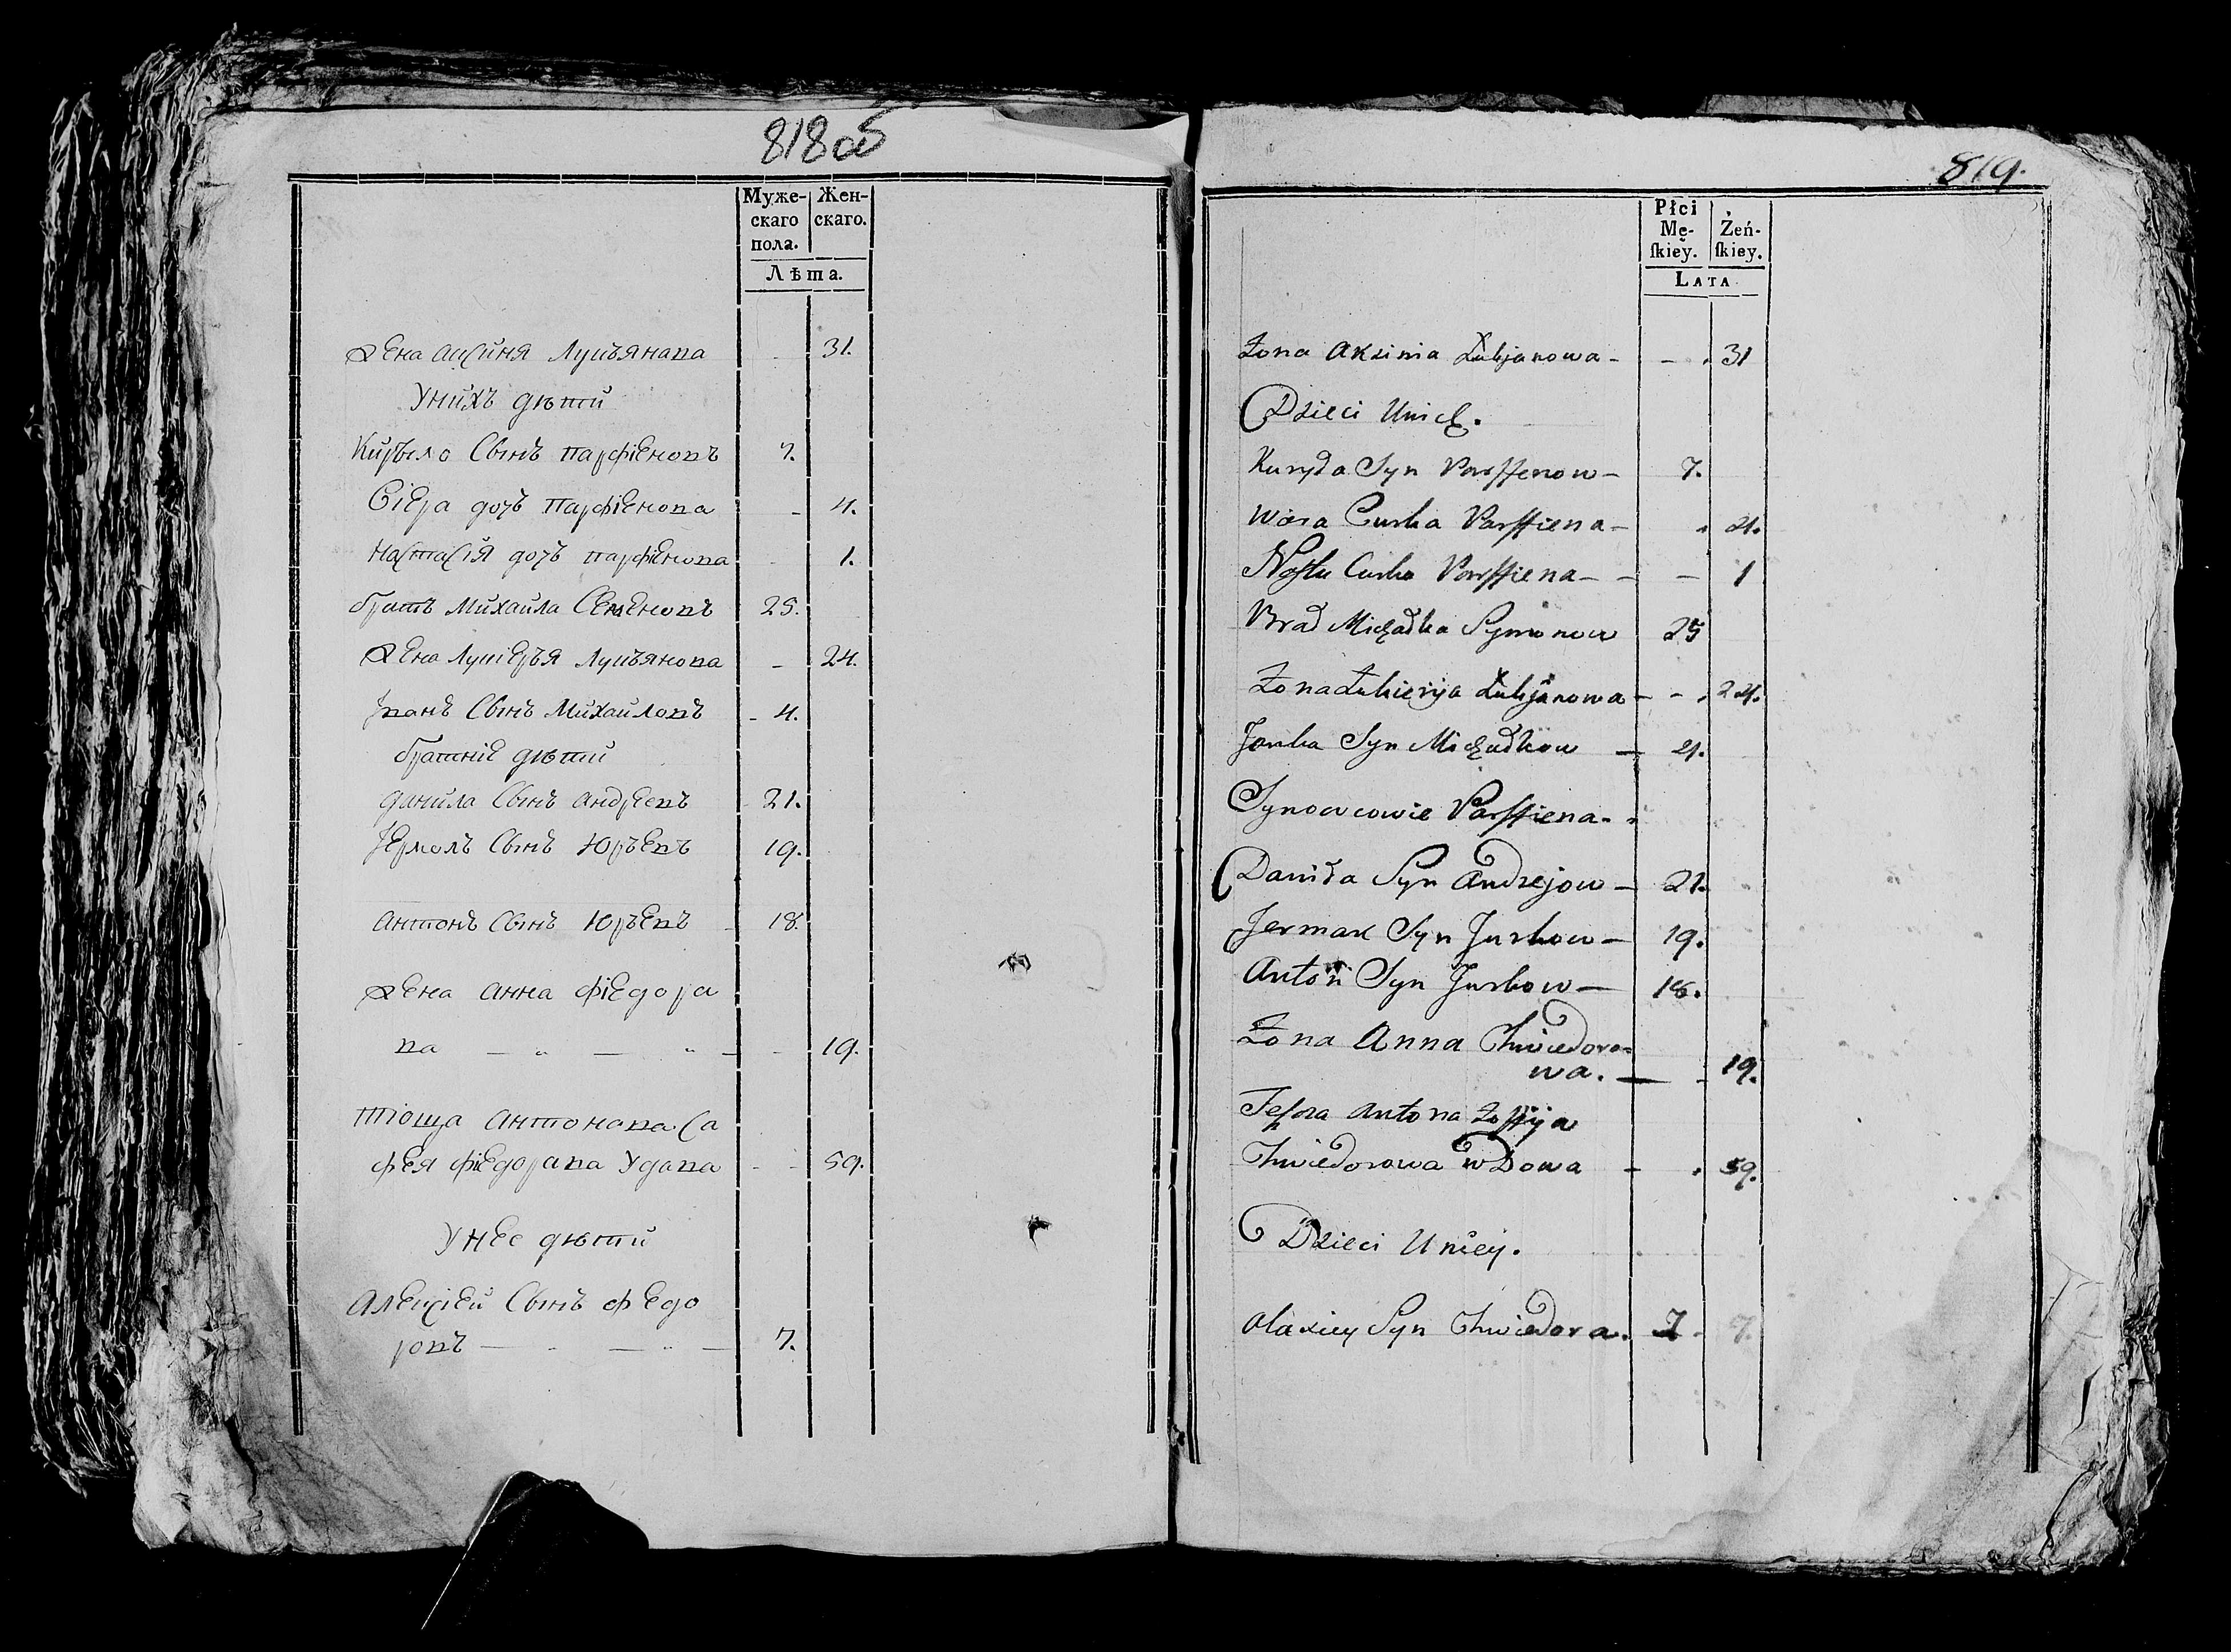 818об
Муже-
скаго
пола.
Жен-
скаго.
Лѣта.
Жена Аксиня Лукъянава 31.
Унихъ дѣти
Кирыло Сынъ парфіеновъ 7.
Віера дочъ парфіенова 4.
Настасія дочъ парфіенова 1.
братъ Михайла Семеновъ 25.
Жена Лукіеръя Лукъянова 24.
Іванъ Сынъ Михайловъ 4.
братніе дѣти
данила Сынъ андреевъ 21.
Іермолъ Сынъ Юръевъ 19.
антонъ Сынъ Юръевъ 18.
Жена анна фіедора
ва 19.
тіоща антонава Са
фея фіедорава удава 59.
Унее дѣти
Алексіей Сынъ федо
ровъ 7.
819.
Płci
Mę-
skiey.
Żeń-
skiey.
LATA
Żona Aksinia Łukjanowa 31
Dzieci Unich.
Kuryła Syn Parffenow 7.
Wiera Curka Parffiena 4.
Nastu Curka Parffiena 1
Brad Michałka Symonow 25
Żona Łukierija Łukjanowa 24.
Janka Syn Michałkow 4.
Synowcowie Parffiena.
Daniła Syn Andrejow 21.
Jermak Syn Jurkow 19.
Antoń Syn Jurkow 18.
Żona Anna Chwiedoro=
wa. 19.
Teszcza Antona Zoffija
Chwiedorowa wdowa 59.
Dzieci Uniey.
Olaxiey Syn Chwiedora. 7. 7.